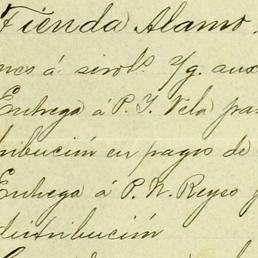 Tienda Alamo.
nes á sirots. y/g. aux
Entrega á P. Y. Vela par
tribución en pagos de
Entrega á P. N. Reyes
distribución